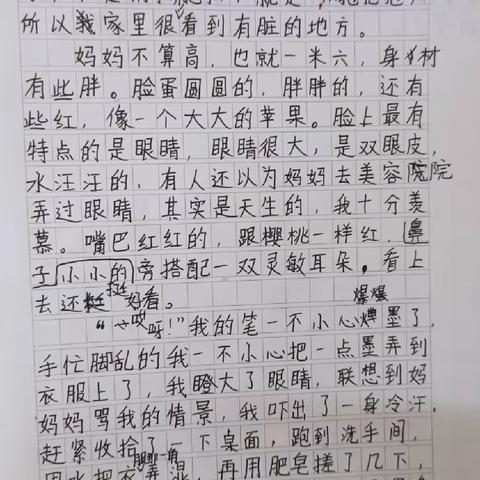 所以我家里很看到有脏的地方。
妈妈不算高，也就一米六，身材
有些胖。脸蛋圆圆的，胖胖的，还有
些红，像一个大大的苹果。脸上最有
特点的是眼睛，眼睛很大，是双眼皮，
水汪汪的，有人还以为妈妈去美容院
弄过眼睛，其实是天生的，我十分羡
慕。嘴巴红红的，跟樱桃一样红，鼻
子小小的旁搭配一双灵敏耳朵，看上
去还挺好看。
“哎呀！”我的笔一不小心爆墨了，
手忙脚乱的我一不小心把一点墨弄到
衣服上了，我瞪大了眼睛，联想到妈
妈妈骂我的情景，我吓出了一身冷汗。
赶紧收拾了一下桌面，跑到洗手间，
用水把衣服那一角弄湿，再用肥皂搓了几下，